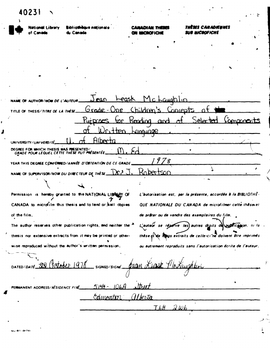 40231
National Library of Canada
Bibliothèque nationale du Canada
CANADIAN THESES ON MICROFICHE
THÈSES CANADIENNES SUR MICROFICHE
NAME OF AUTHOR/NOM DE L'AUTEUR Jean Leask McLaughlin
TITLE OF THESIS/TITRE DE LA THÈSE Grade One Children's Concepts of
Purposes for Reading and of Selected Components
of Written Language
UNIVERSITY/UNIVERSITÉ U. of Alberta
DEGREE FOR WHICH THESIS WAS PRESENTED/
GRADE POUR LEQUEL CETTE THÈSE FUT PRÉSENTÉE M. Ed
YEAR THIS DEGREE CONFERRED/ANNÉE D'OBTENTION DE CE GRADE 1978
NAME OF SUPERVISOR/NOM DU DIRECTEUR DE THÈSE Dr. J. Robertson
Permission is hereby granted to the NATIONAL LIBRARY OF
CANADA to microfilm this thesis and to lend or sell copies
of the film.
The author reserves other publication rights, and neither the
thesis nor extensive extracts from it may be printed or other-
wise reproduced without the author's written permission.
L'autorisation est, par la présente, accordée à la BIBLIOTHÈ-
QUE NATIONALE DU CANADA de microfilmer cette thèse et
de prêter ou de vendre des exemplaires du film.
L'auteur se réserve les autres droits de publication; ni la
thèse ni de longs extraits de celle-ci ne doivent être imprimés
ou autrement reproduits sans l'autorisation écrite de l'auteur.
DATED/DATÉ October 1978 SIGNED/SIGNÉ Jean Leask McLaughlin
PERMANENT ADDRESS/RÉSIDENCE FIXE
Edmonton Alberta